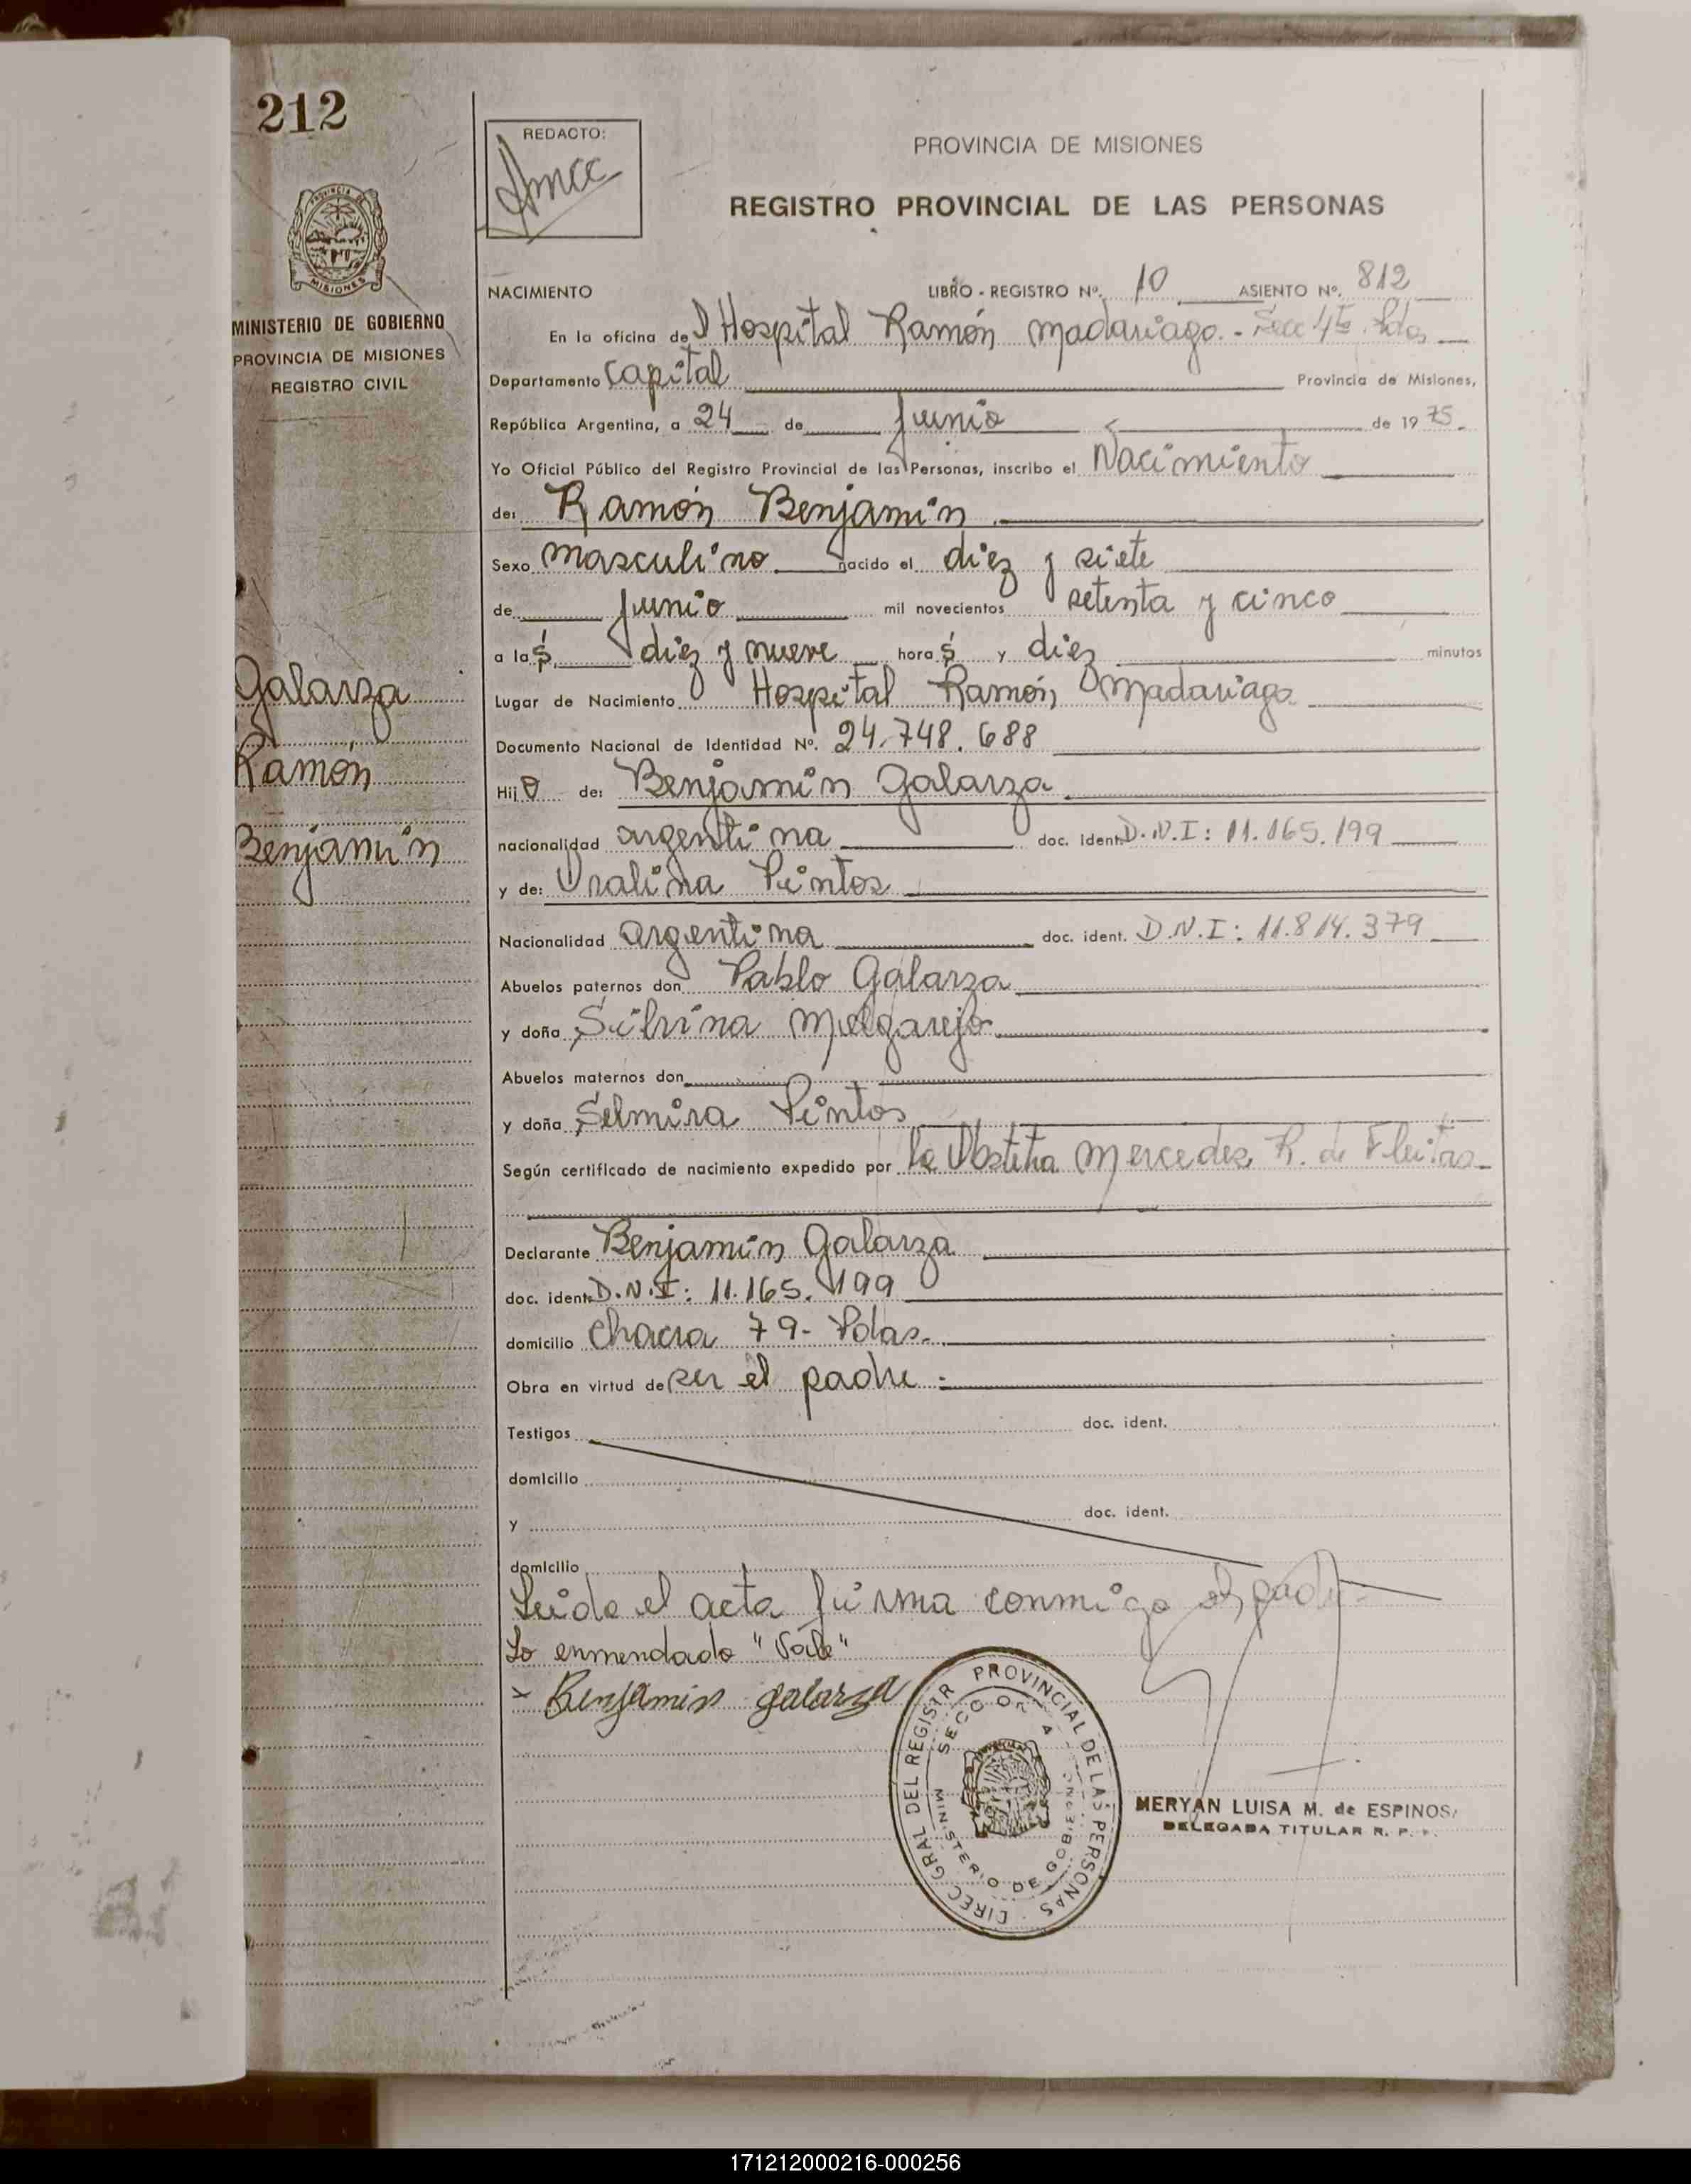 212
REDACTO:
PROVINCIA DE MISIONES
REGISTRO PROVINCIAL DE LAS PERSONAS
MINISTERIO DE GOBIERNO
PROVINCIA DE MISIONES
REGISTRO CIVIL
NACIMIENTO LIBRO - REGISTRO Nº. 10 ASIENTO Nº. 812
En la oficina del Hospital Ramón Madariaga. - Secc 4ta. Pdas
Departamento Capital Provincia de Misiones,
República Argentina, a 24 de Junio de 1975.
Yo Oficial Público del Registro Provincial de las Personas, inscribo el Nacimiento
de: Ramón Benjamín
Sexo masculino nacido el diez y siete
de Junio mil novecientos setenta y cinco
a las diez y nueve horas y diez minutos
Lugar de Nacimiento Hospital Ramón Madariaga
Documento Nacional de Identidad Nº. 24.748.688
Hijo de: Benjamín Galarza
nacionalidad argentina doc. ident. D.N.I: 11.165.199
y de: Uralina Pintos
Nacionalidad argentina doc. ident. D.N.I: 11.814.379
Abuelos paternos don Pablo Galarza
y doña Silvina Melgarejo
Abuelos maternos don
y doña Selmira Pintos
Según certificado de nacimiento expedido por la Obstetra Mercedes R. de Fleitas
Declarante Benjamín Galarza
doc. ident. D.N.I: 11.165.199
domicilio Chacra 79- Pdas.
Obra en virtud de ser el padre.
Testigos doc. ident.
domicilio
y doc. ident.
domicilio
Leida el acta firma conmigo el padre-
Lo enmendado "Vale"
x Benjamin galarza
Galarza
Ramón
Benjamín
DIREC GRAL DEL REGISTR PROVINCIAL DE LAS PERSONAS
MINISTERIO DE GOBIERNO
MERYAN LUISA M. de ESPINOS
DELEGADA TITULAR R. P.
171212000216-000256